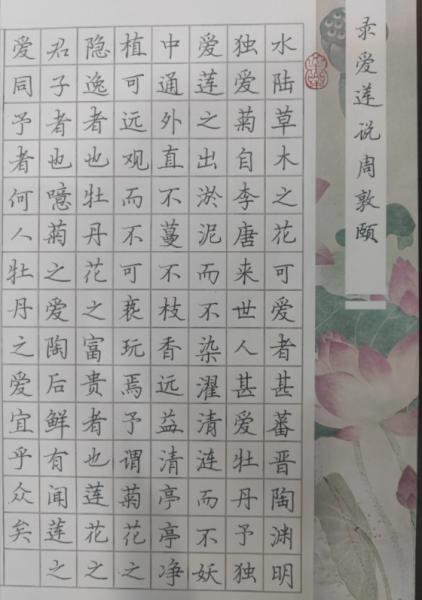 录爱莲说周敦颐
水陆草木之花可爱者甚蕃晋陶渊明
独爱菊自李唐来世人甚爱牡丹予独
爱莲之出淤泥而不染濯清涟而不妖
中通外直不蔓不枝香远益清亭亭净
植可远观而不可亵玩焉予谓菊花之
隐逸者也牡丹花之富贵者也莲花之
君子者也噫菊之爱陶后鲜有闻莲之
爱同予者何人牡丹之爱宜乎众矣